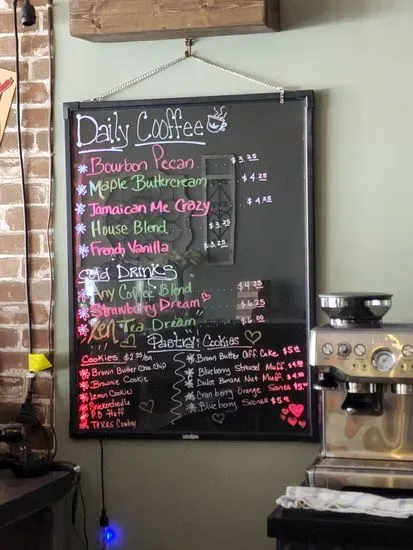 Daily Cooffee
* Bourbon Pecan $3.25
* Maple Buttercream $4.25
* Jamaican Me Crazy $4.25
* House Blend $3.25
* French Vanilla $3.25
Cold Drinks
* Any Coffee Blend $4.25
* Strawberry Dream $6.25
Zen Tea Dream $6.00
Pastrai Cookies
Cookies $2.50/ea
* Brown Butter Choc Chip
* Brownie Cookie
* Lemon Cookie
* Snickerdoodle
* PB Fluff
* Texas Cowboy
* Brown Butter Coff. Cake $5.
* Blueberry Streusel Muff.
* Dulce Banana Nut Muff.
* Cranberry Orange Scones
* Blueberry Scones $5.